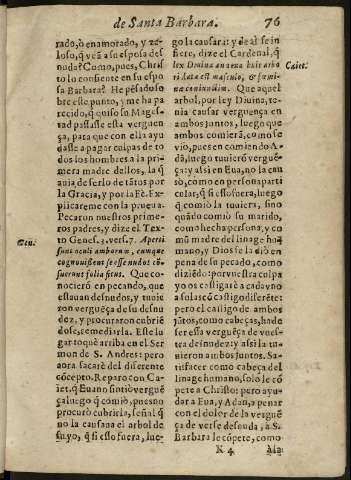 de Santa Barbara.
76
rado, ò enamorado, y ze-
loso, q̃ veã a su esposa des
nuda? Como, pues, Chris
to lo consiente en su espo
sa Barbara? He pẽsado so
bre este punto, y me ha pa
recido, q̃ quiso su Mages-
tad passasse esta verguen-
ça, para que con ella ayu
dasse a pagar culpas de to
dos los hombres a la pri-
mera madre dellos, la q̃
auia de serlo de tãtos por
la Gracia, y por la Fè. Ex
plicareme con la prueua.
Pecaron nuestros prime-
ros padres, y dize el Tex-
to Genes. 3. vers. 7. Aperti
sunt oculi amborum, cumque
cognouissent se esse nudos cõ-
suerunt folia ficus. Que co-
nocierõ en pecando, que
estauan desnudos, y tuuie
ron verguẽça de su desnu
dez, y procuraron cubriẽ
dose, remediarla. Este lu
gar toquè arriba en el Ser
mon de S. Andres: pero ao
ra sacarè del diferente
cõcepto. Reparo con Ca-
iet. q̃ Eua no sintiò verguẽ
ça luego q̃ comiò, pues no
procurò cubrirla, señal q̃
no la causaua el arbol de
suyo, q̃ si esso fuera, lue-
Gen.
go la causara: y de al se in
fiere, dize el Cardenal, q̃
lex Diuina annexa huic arbo
ri data est masculo, & fœmi-
na coniunctim. Que aquel
arbol, por ley Diuina, te-
nia causar verguença en
ambos juntos, luego que
ambos comierã, como se
viò, pues en comiendo A-
dã, luego tuuierõ verguẽ-
ça: y assi en Eua, no la cau
sò, como en persona parti
cular, q̃ si esso fuera, luego
q̃ comiò la tuuiera, sino
quãdo comiò su marido,
como hecha persona, y co
mũ madre del linage hu-
mano, y Dios se la diò en
pena de su pecado, como
diziẽdo: por vuestra culpa
yo os castigarè a cada vno
a solas cõ castigo discrete:
pero el castigo de ambos
jũtos, como cabeças, ha de
ser essa verguẽça de vues-
tra desnudez: y assi la tu-
uieron ambos juntos. Sa-
tisfacer como cabeça del
linage humano, solo le cõ
pete a Christo: pero ayu-
dar a Eua, y Adan, a penar
con el dolor de la verguẽ
ça de verse desnuda, à S.
Barbara le cõpete, como
Caiet.
K 4